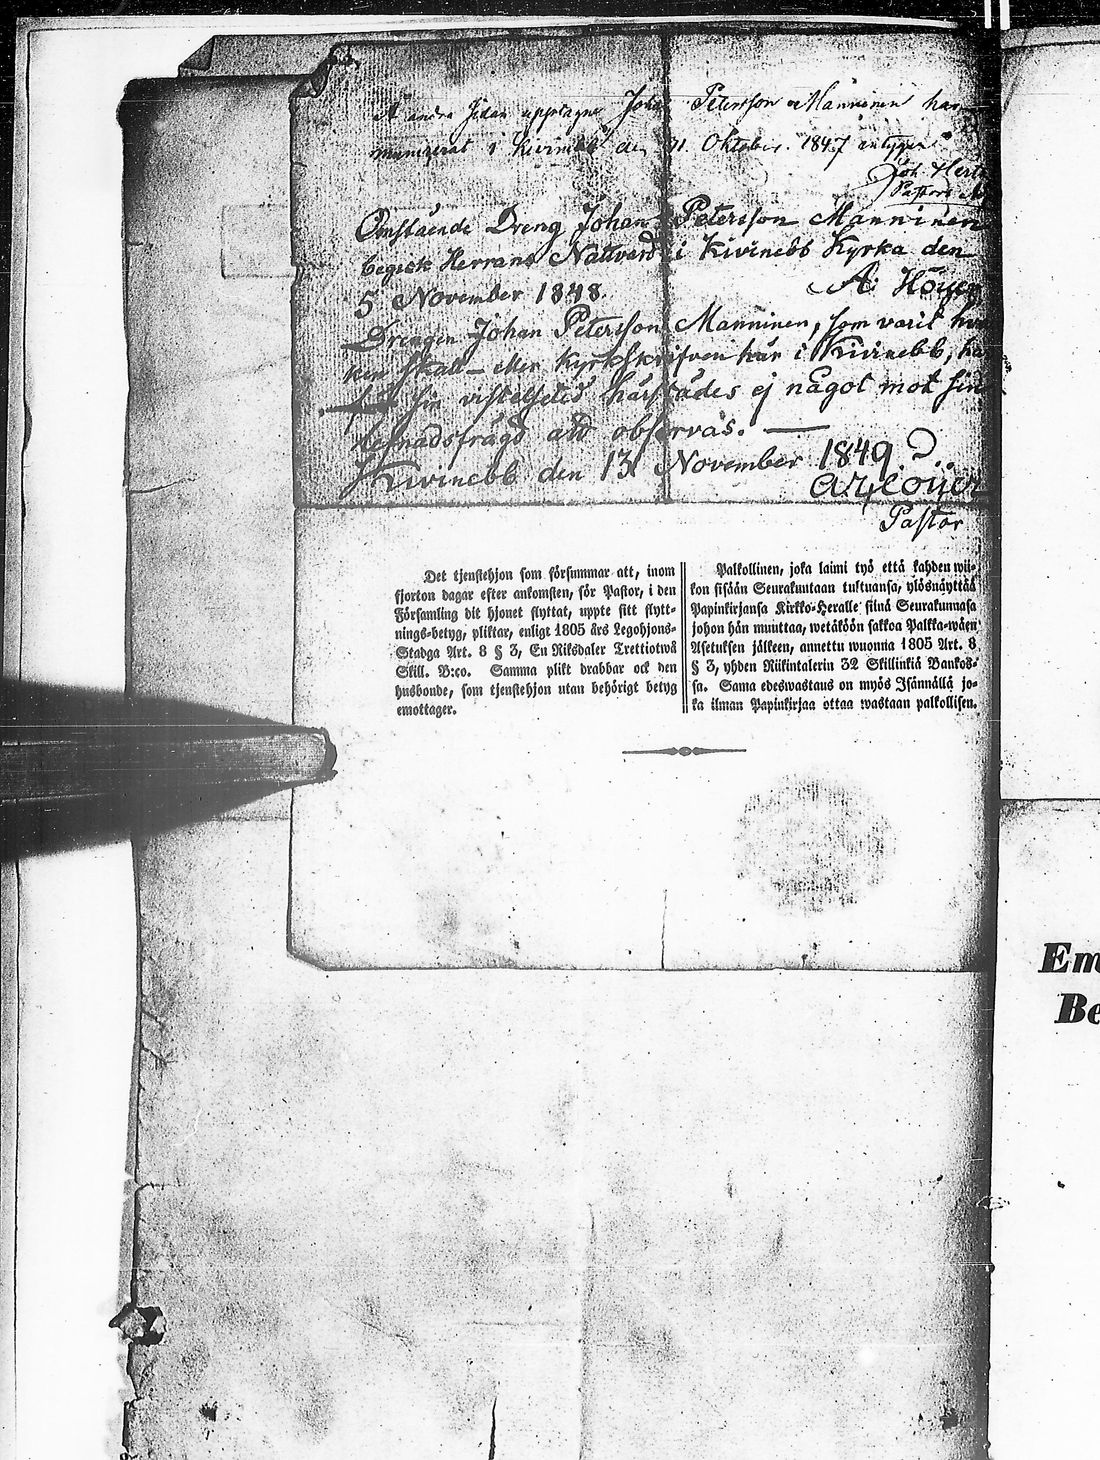 Å andra sidan upptagne Johan Petersson Manninen har
i Kivinebb den 31 Oktober 1847 intyga
Joh. Hert
Pastors
Omstående Dreng Johan Petersson Manninen
begick Herrans Nattvard i Kivinebb Kyrka den
5 November 1848. A. Höijer
Drengen Johan Petersson Manninen, som varit
ken skatt- eller kyrkskrifven här i Kivinebb, ha
sin vistelsetid härstädes ej något mot sin
lefnadsfrägd att observas. —
Kivinebb den 13 November 1849.
A. Höijer
Pastor
Det tjenstehjon som försummar att, inom
fjorton dagar efter ankomsten, för Pastor, i den
Församling dit hjonet flyttat, uppte sitt flytt-
nings-betyg, pliktar, enligt 1805 års Legohjons-
Stadga Art. 8 § 3, En Riksdaler Trettiotwå
Skill. B:co. Samma plikt drabbar ock den
husbonde, som tjenstehjon utan behörigt betyg
emottager.
Palkollinen, joka laimi lyö että kahden wii-
kon sisään Seurakuntaan tultuansa, ylösnäyttää
Papinkirjansa Kirkko-Heralle siinä Seurakunnasa
johon hän muuttaa, wetäköön sakkoa Palkka-wäen
Asetuksen jälkeen, annettu wuonna 1805 Art. 8
§ 3, yhden Riikintalerin 32 Skillinkiä Bankos-
sa. Sama edeswastaus on myös Isännällä jo-
ka ilman Papinkirjaa ottaa wastaan palkollisen.
Em
Be